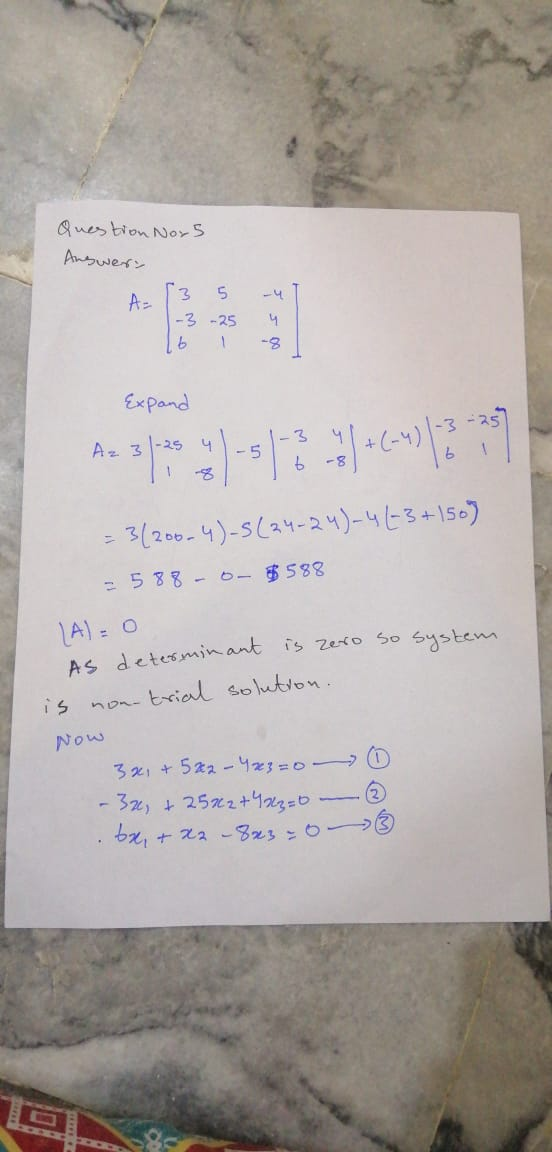 Question No:- 5
Answer:-
A= [3 5 -4
-3 -25 4
6 1 -8]
Expand
A= 3 |-25 4 1 -8| -5 |-3 4 6 -8| +(-4) |-3 -25 6 1|
= 3(200-4)-5(24-24)-4(-3+150)
= 588 - 0 - 588
|A| = 0
As determinant is zero so system
is non-trial solution.
Now
3x1 + 5x2 - 4x3 = 0 → ①
-3x1 + 25x2 + 4x3 = 0 — ②
. 6x1 + x2 - 8x3 = 0 → ③